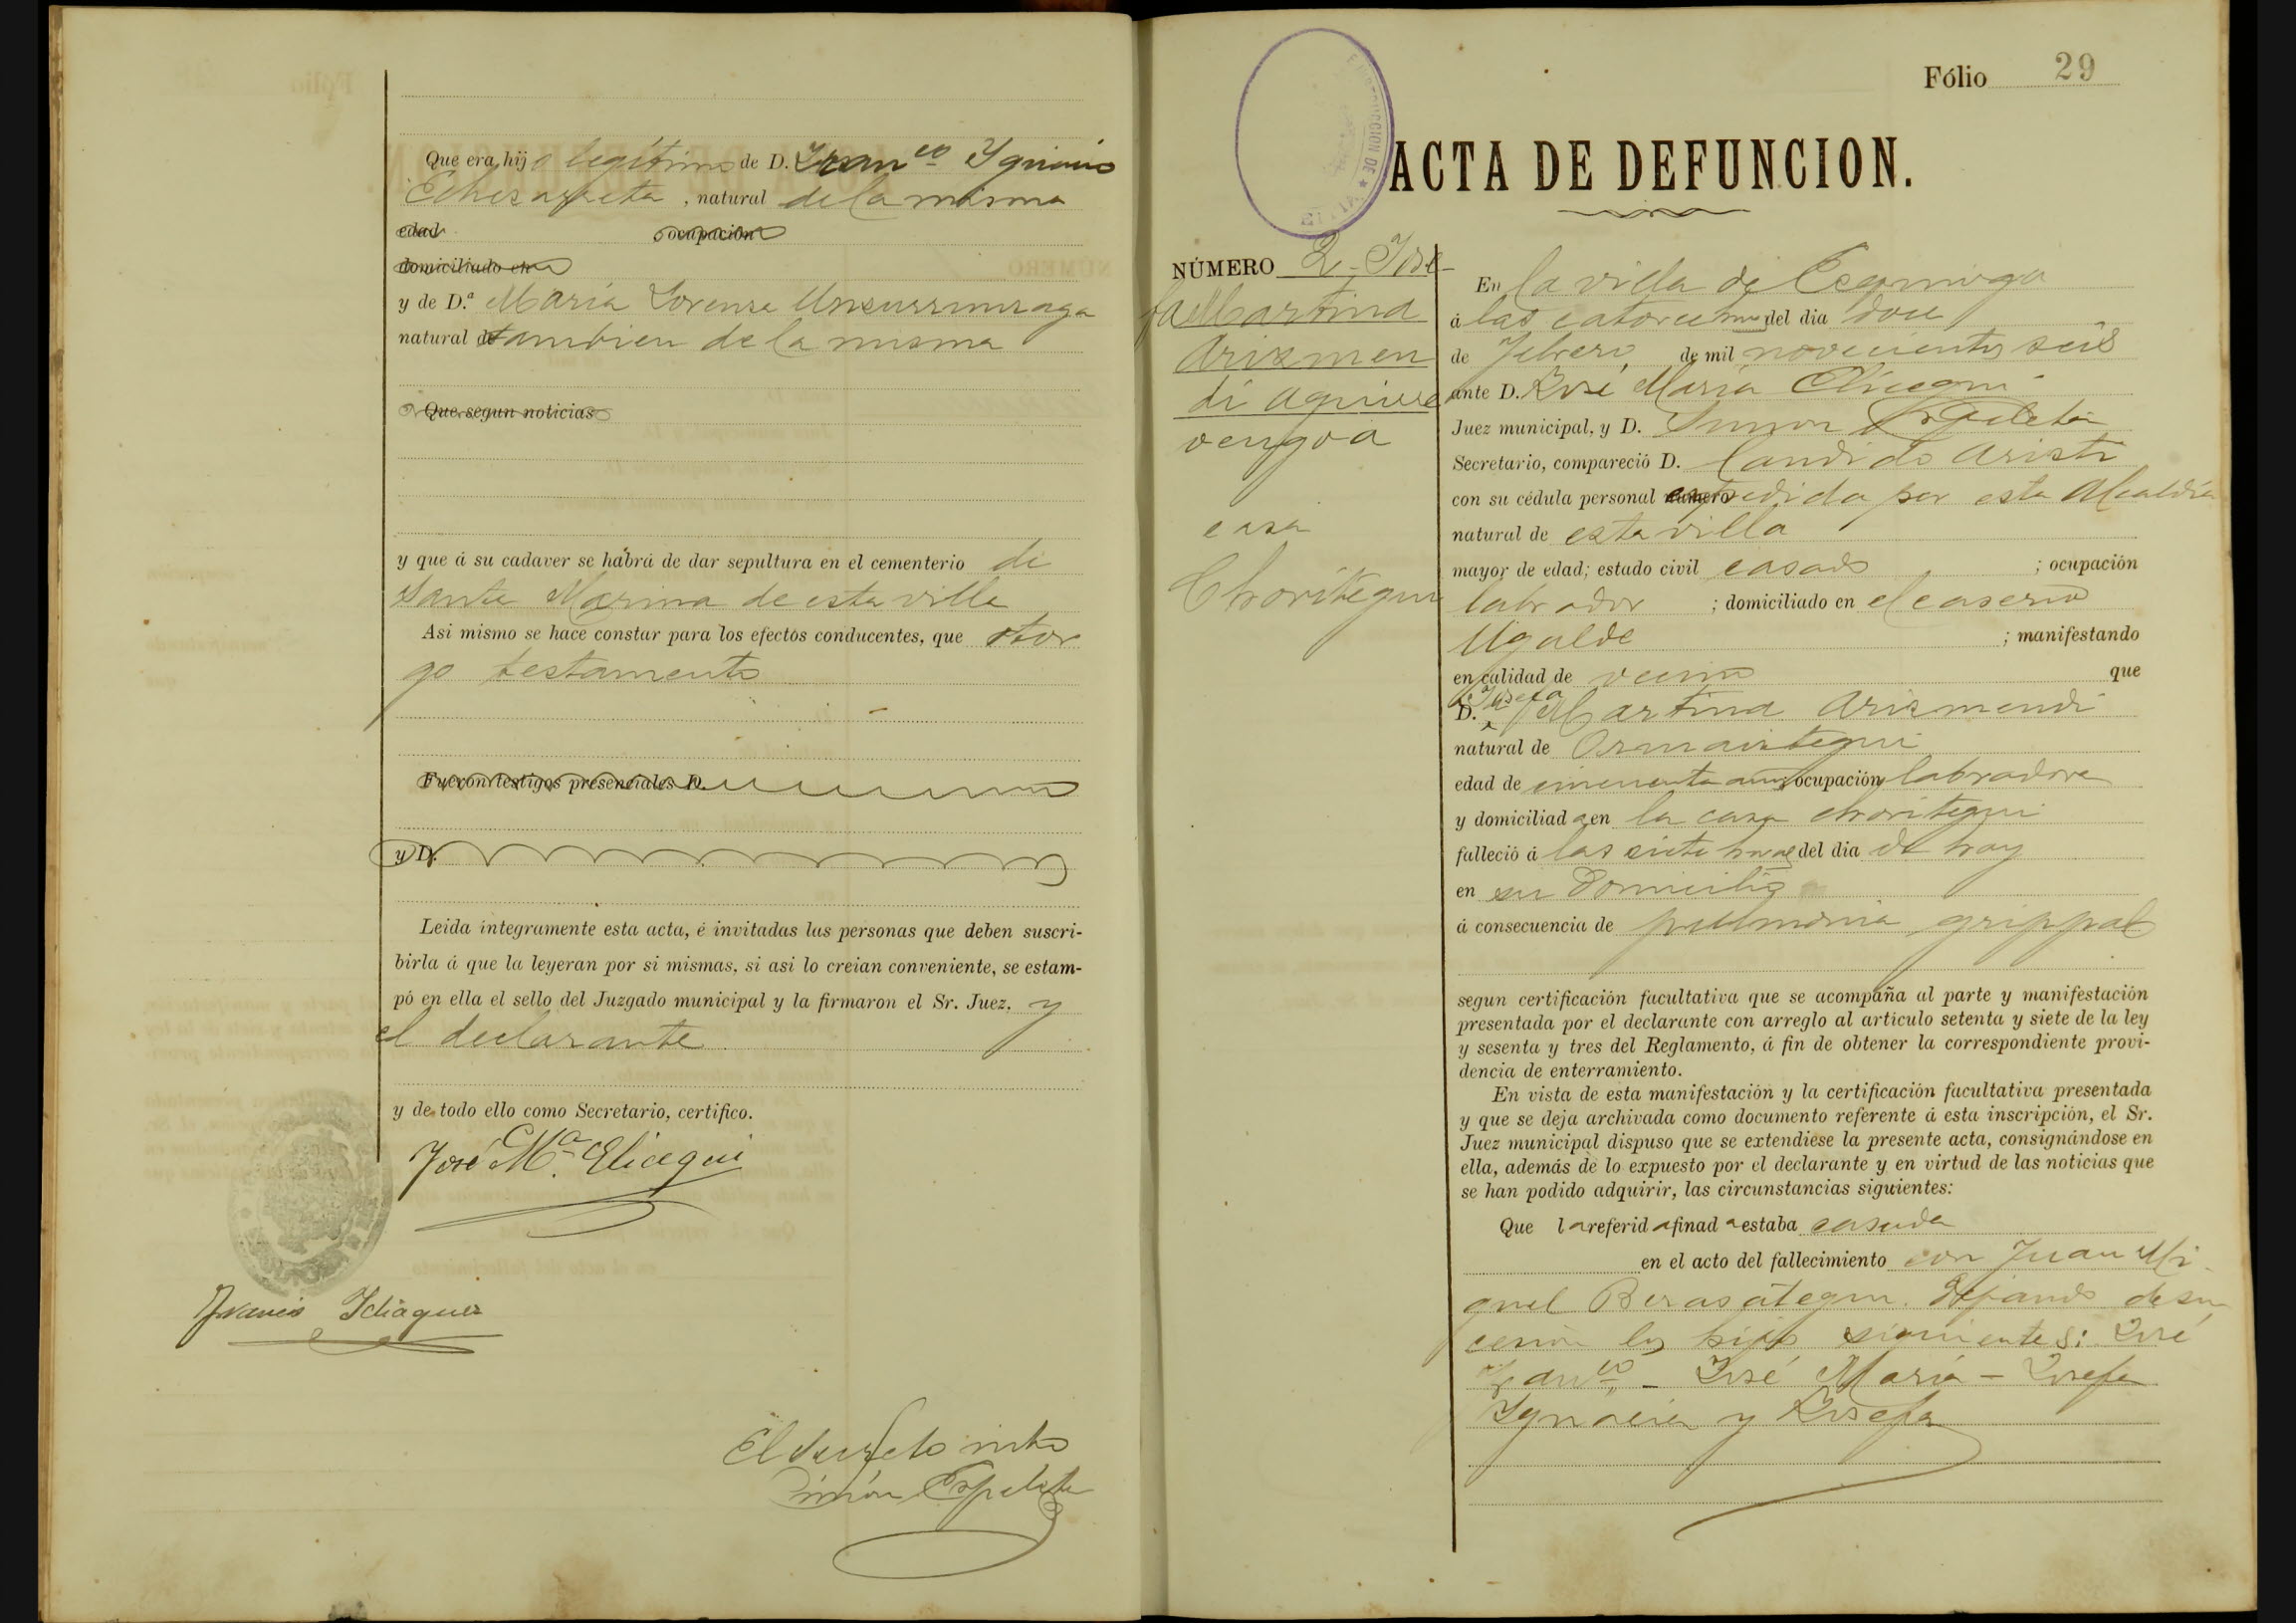 Que era hijo legítimo de D. Franco Ygnacio
Echezarreta, natural de la misma
edad ocupación
domiciliado en
y de D.ª María Lorenza Unsurrunzaga
natural de tambien de la misma
Que segun noticias
y que á su cadaver se habrá de dar sepultura en el cementerio de
Santa Marina de esta villa
Asi mismo se hace constar para los efectos conducentes, que otor
go testamento
Fueron testigos presenciales D.
y D.
Leida íntegramente esta acta, é invitadas las personas que deben suscri-
birla á que la leyeran por si mismas, si asi lo creian conveniente, se estam-
pó en ella el sello del Juzgado municipal y la firmaron el Sr. Juez, y
el declarante
y de todo ello como Secretario, certifico.
José Mª Elicegui
El Secreto
Simón Espeleta
Fólio 29
ACTA DE DEFUNCION.
NÚMERO 2 - Jose
fa Martina
Arizmen
di Aguirre
vengoa
casa
Choritegui
En la villa de Ezquioga
á las catorce del dia doce
de Febrero de mil novecientos seis
ante D. José María Elicegui
Juez municipal, y D. Simon Espeleta
Secretario, compareció D. Candido Aristi
con su cédula personal número expedida por esta Alcaldía
natural de esta villa
mayor de edad; estado civil casado ; ocupación
labrador ; domiciliado en el caserio
Ugalde ; manifestando
en calidad de vecino que
D.ª Josefa Martina Arizmendi
natural de Ormaiztegui
edad de cincuenta años ocupación labradora
y domiciliada en la casa choritegui
falleció á las siete horas del dia de hoy
en su domicilio
á consecuencia de pulmonia grippal
segun certificación facultativa que se acompaña al parte y manifestación
presentada por el declarante con arreglo al artículo setenta y siete de la ley
y sesenta y tres del Reglamento, á fin de obtener la correspondiente provi-
dencia de enterramiento.
En vista de esta manifestación y la certificación facultativa presentada
y que se deja archivada como documento referente á esta inscripción, el Sr.
Juez municipal dispuso que se extendiese la presente acta, consignándose en
ella, además de lo expuesto por el declarante y en virtud de las noticias que
se han podido adquirir, las circunstancias siguientes:
Que la referida finada estaba casada
en el acto del fallecimiento con Juan Mi-
guel Berasategui. Dejando de su
cesión los hijos siguientes: José
Franco - José María - Josefa
Ygnacia y Josefa